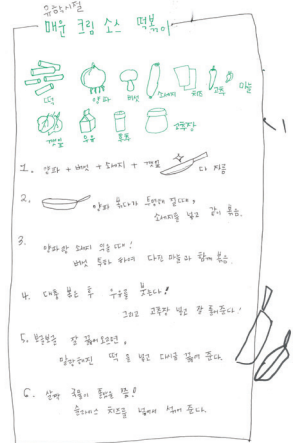 매운 크림 소스 떡볶이
떡 양파 버섯 소세지 치즈 고추 마늘
깻잎 우유 후추 고추장
1. 양파 + 버섯 + 소세지 + 깻잎 다 자름
2. 양파 볶다가 투명해 질때,
소세지를 넣고 같이 볶음.
3. 양파랑 소세지 익을때!
버섯 투하 하여 다진 마늘과 함께 볶음.
4. 대충 볶은 후 우유를 붓는다!
그리고 고추장 넣고 잘 풀어준다!
5. 보글보글 잘 끓어오르면,
말랑해진 떡을 넣고 다시금 끓여 준다.
6. 살짝 국물이 졸았을 쯤!
슬라이스 치즈를 넣어서 섞어 준다.